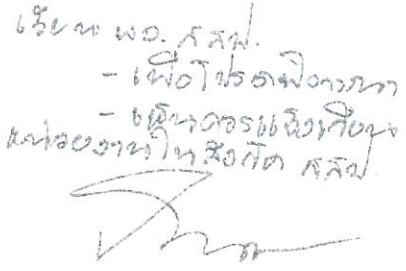 เรียน ผอ. สสป.
- เพื่อโปรดพิจารณา
- เห็นควรแจ้งเวียน
หน่วยงานในสังกัด สสป.